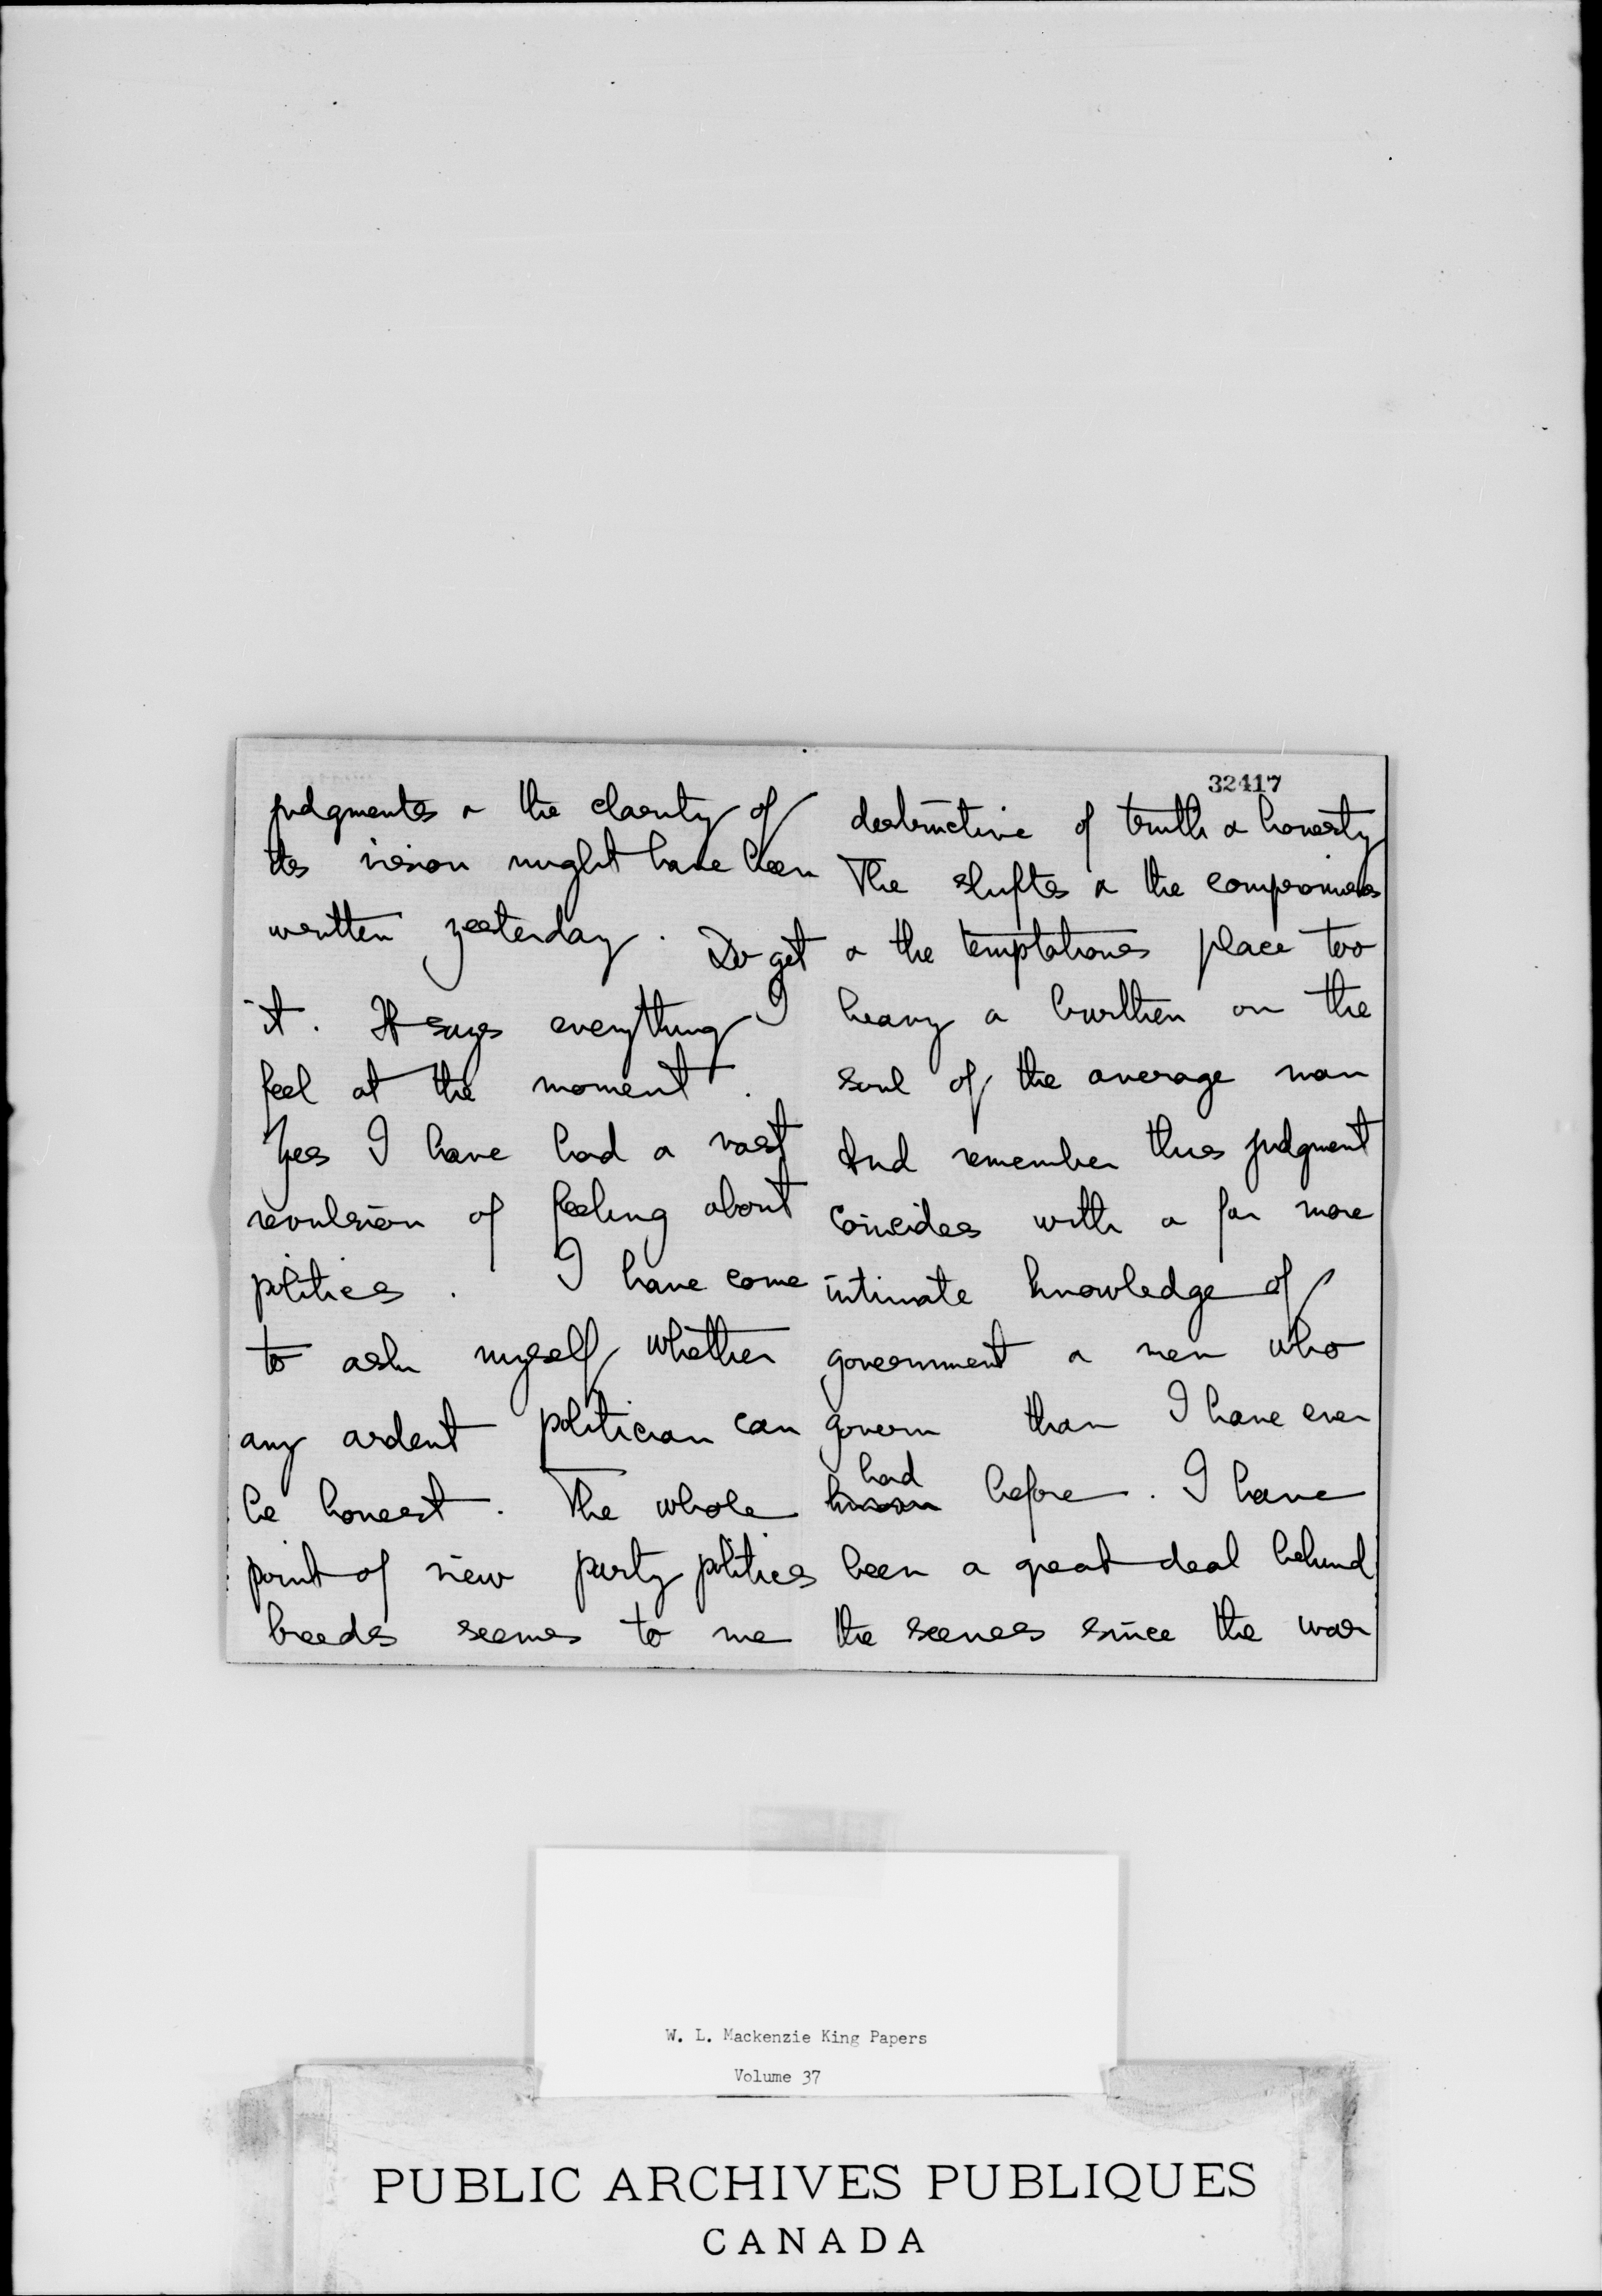 judgments & the clarity of
its vision might have been
written yesterday. Do get
it. It says everything I
feel at the moment.
Yes I have had a vast
revulsion of feeling about
politics. I have come
to ask myself whether
any ardent politician can
be honest. The whole
point of view party politics
breeds seems to me
32417
destructive of truth & honesty
The shifts & the compromises
& the temptations place too
heavy a burthen on the
soul of the average man
And remember this judgment
coincides with a far more
intimate knowledge of
government & men who
govern than I have ever
had
known before. I have
been a great deal behind
the scenes since the war
W. L. Mackenzie King Papers
Volume 37
PUBLIC ARCHIVES PUBLIQUES
CANADA